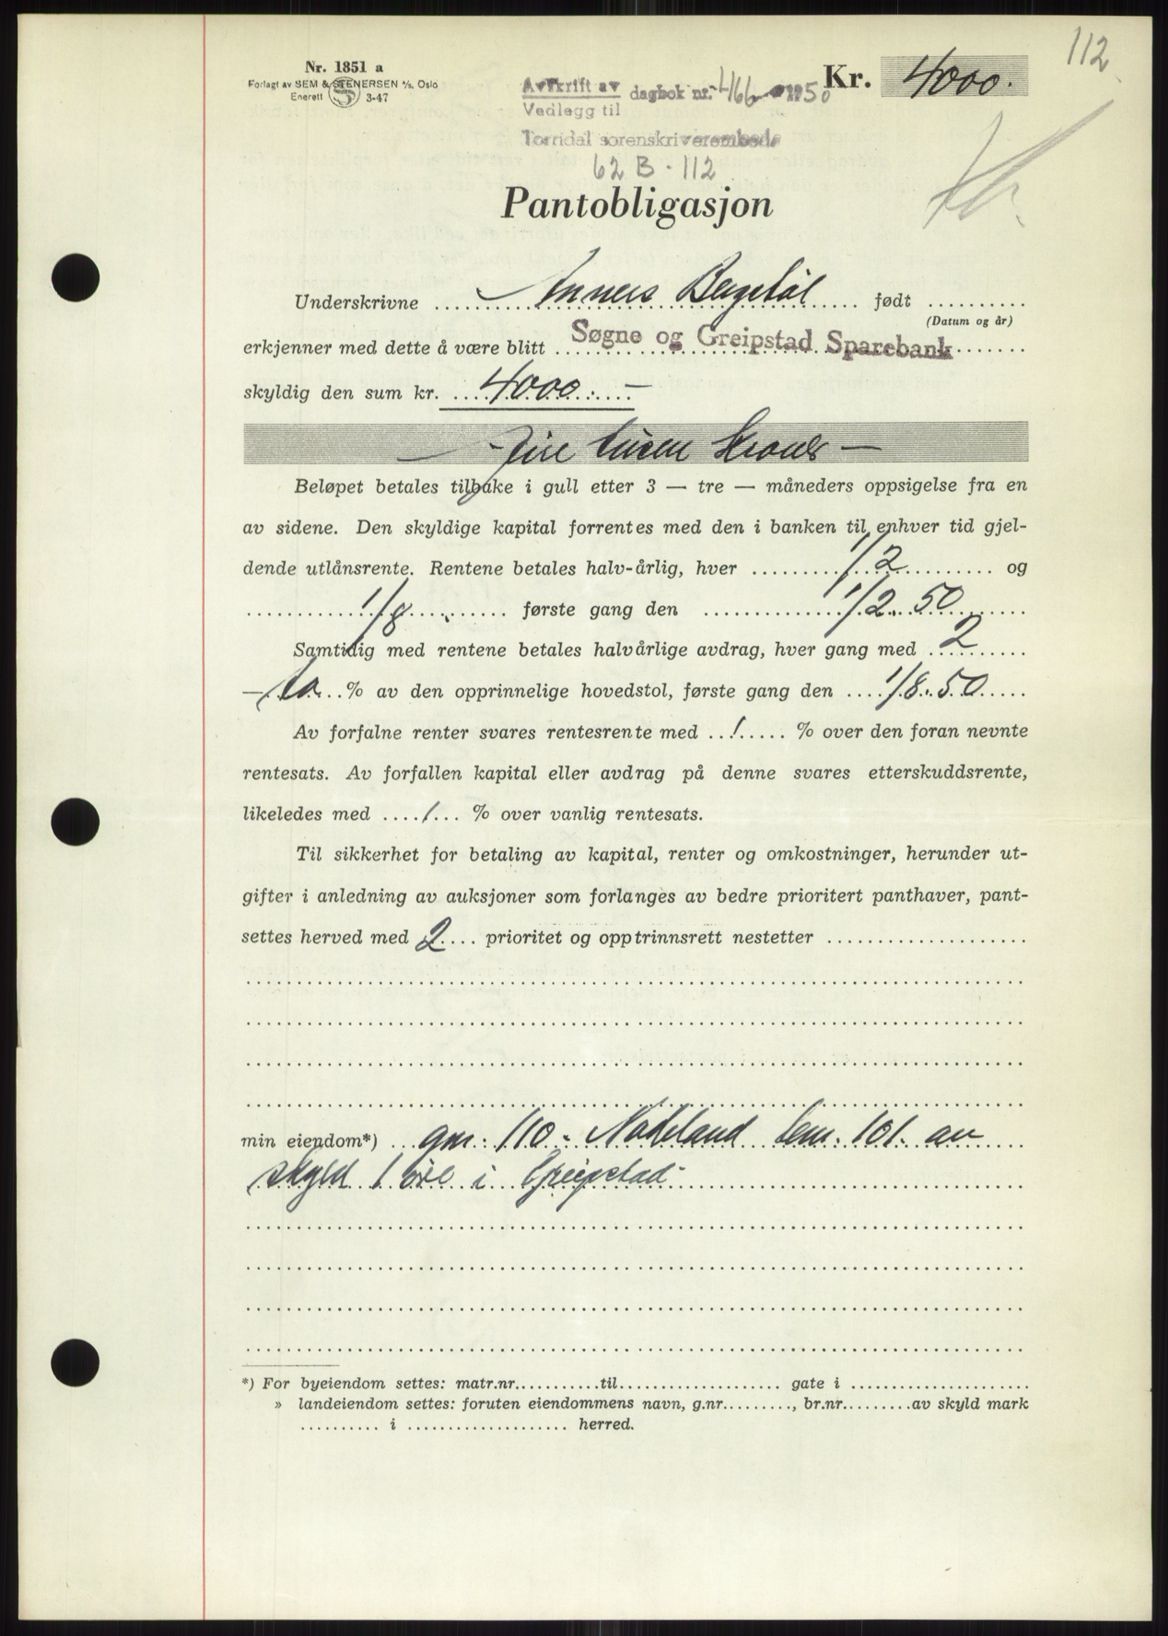 112
Nr. 1851 a
Forlagt av SEM & STENERSEN A/S, Oslo
Enerett 3-47
Avskrift av dagbok nr. 466 1950
Vedlegg til
Torridal sorenskriverembede
62 B - 112
Kr. 4000.
Pantobligasjon
Underskrivne Anners Bergstøl født
(Datum og år)
erkjenner med dette å være blitt Søgne og Greipstad Sparebank
skyldig den sum kr. 4000.-
— fire tusen kroner —
Beløpet betales tilbake i gull etter 3 — tre — måneders oppsigelse fra en
av sidene. Den skyldige kapital forrentes med den i banken til enhver tid gjel-
dende utlånsrente. Rentene betales halv-årlig, hver 1/2 og
1/8 første gang den 1/2.50
Samtidig med rentene betales halvårlige avdrag, hver gang med 2
— to % av den opprinnelige hovedstol, første gang den 1/8.50
Av forfalne renter svares rentesrente med 1 % over den foran nevnte
rentesats. Av forfallen kapital eller avdrag på denne svares etterskuddsrente,
likeledes med 1 % over vanlig rentesats.
Til sikkerhet for betaling av kapital, renter og omkostninger, herunder ut-
gifter i anledning av auksjoner som forlanges av bedre prioritert panthaver, pant-
settes herved med 2 prioritet og opptrinnsrett nestetter
min eiendom*) gnr. 110 - Nodeland bnr. 101. av
skyld 1 øre i Greipstad
*) For byeiendom settes: matr.nr. til gate i
» landeiendom settes: foruten eiendommens navn, g.nr. , br.nr. av skyld mark
i herred.